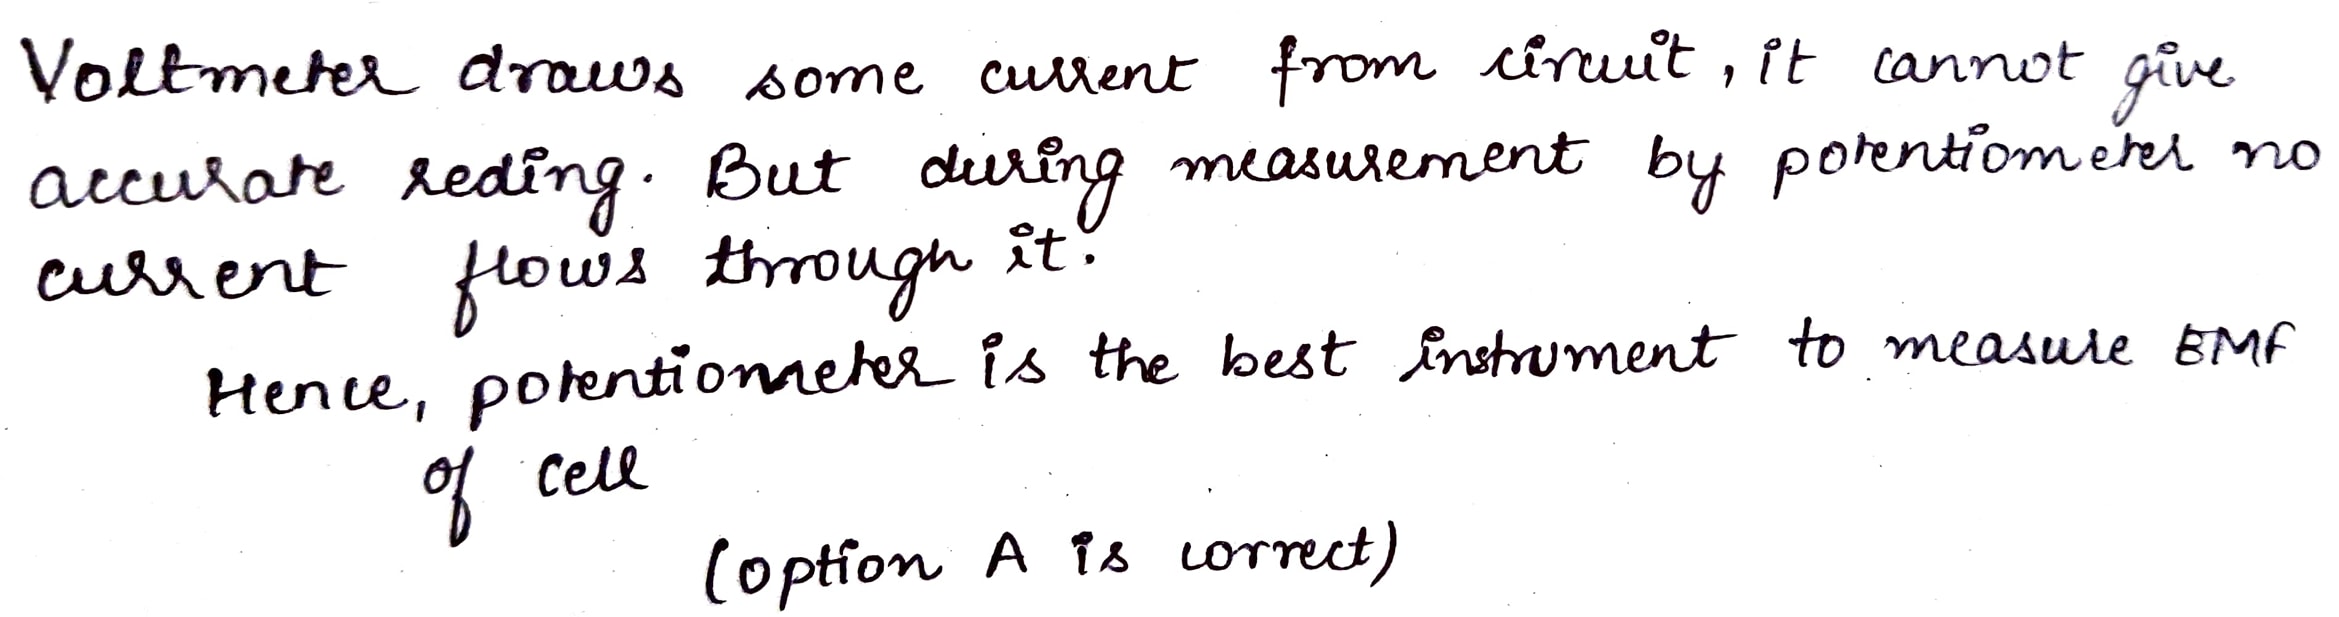 Voltmeter draws some current from circuit, it cannot give
accurate reding. But during measurement by potentiometer no
current flows through it.
Hence, potentiometer is the best instrument to measure EMF
of cell
(option A is correct)